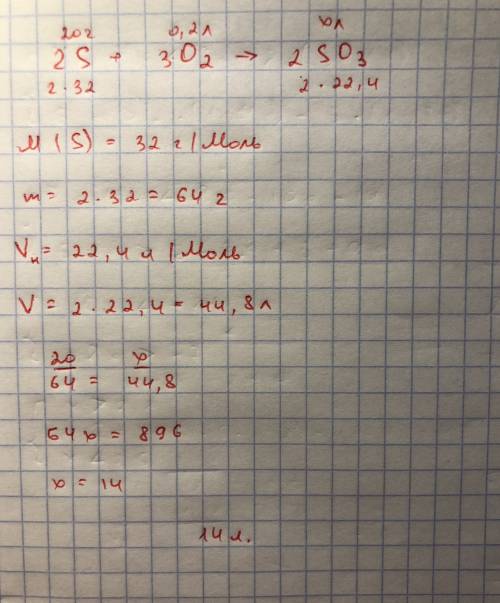 20г 0,2л xл
2S + 3O2 → 2SO3
2·32 2·22,4
M(S) = 32 г/моль
m = 2·32 = 64 г
Vм = 22,4 л/моль
V = 2·22,4 = 44,8л
20/64 = x/44,8
64x = 896
x = 14
14л.